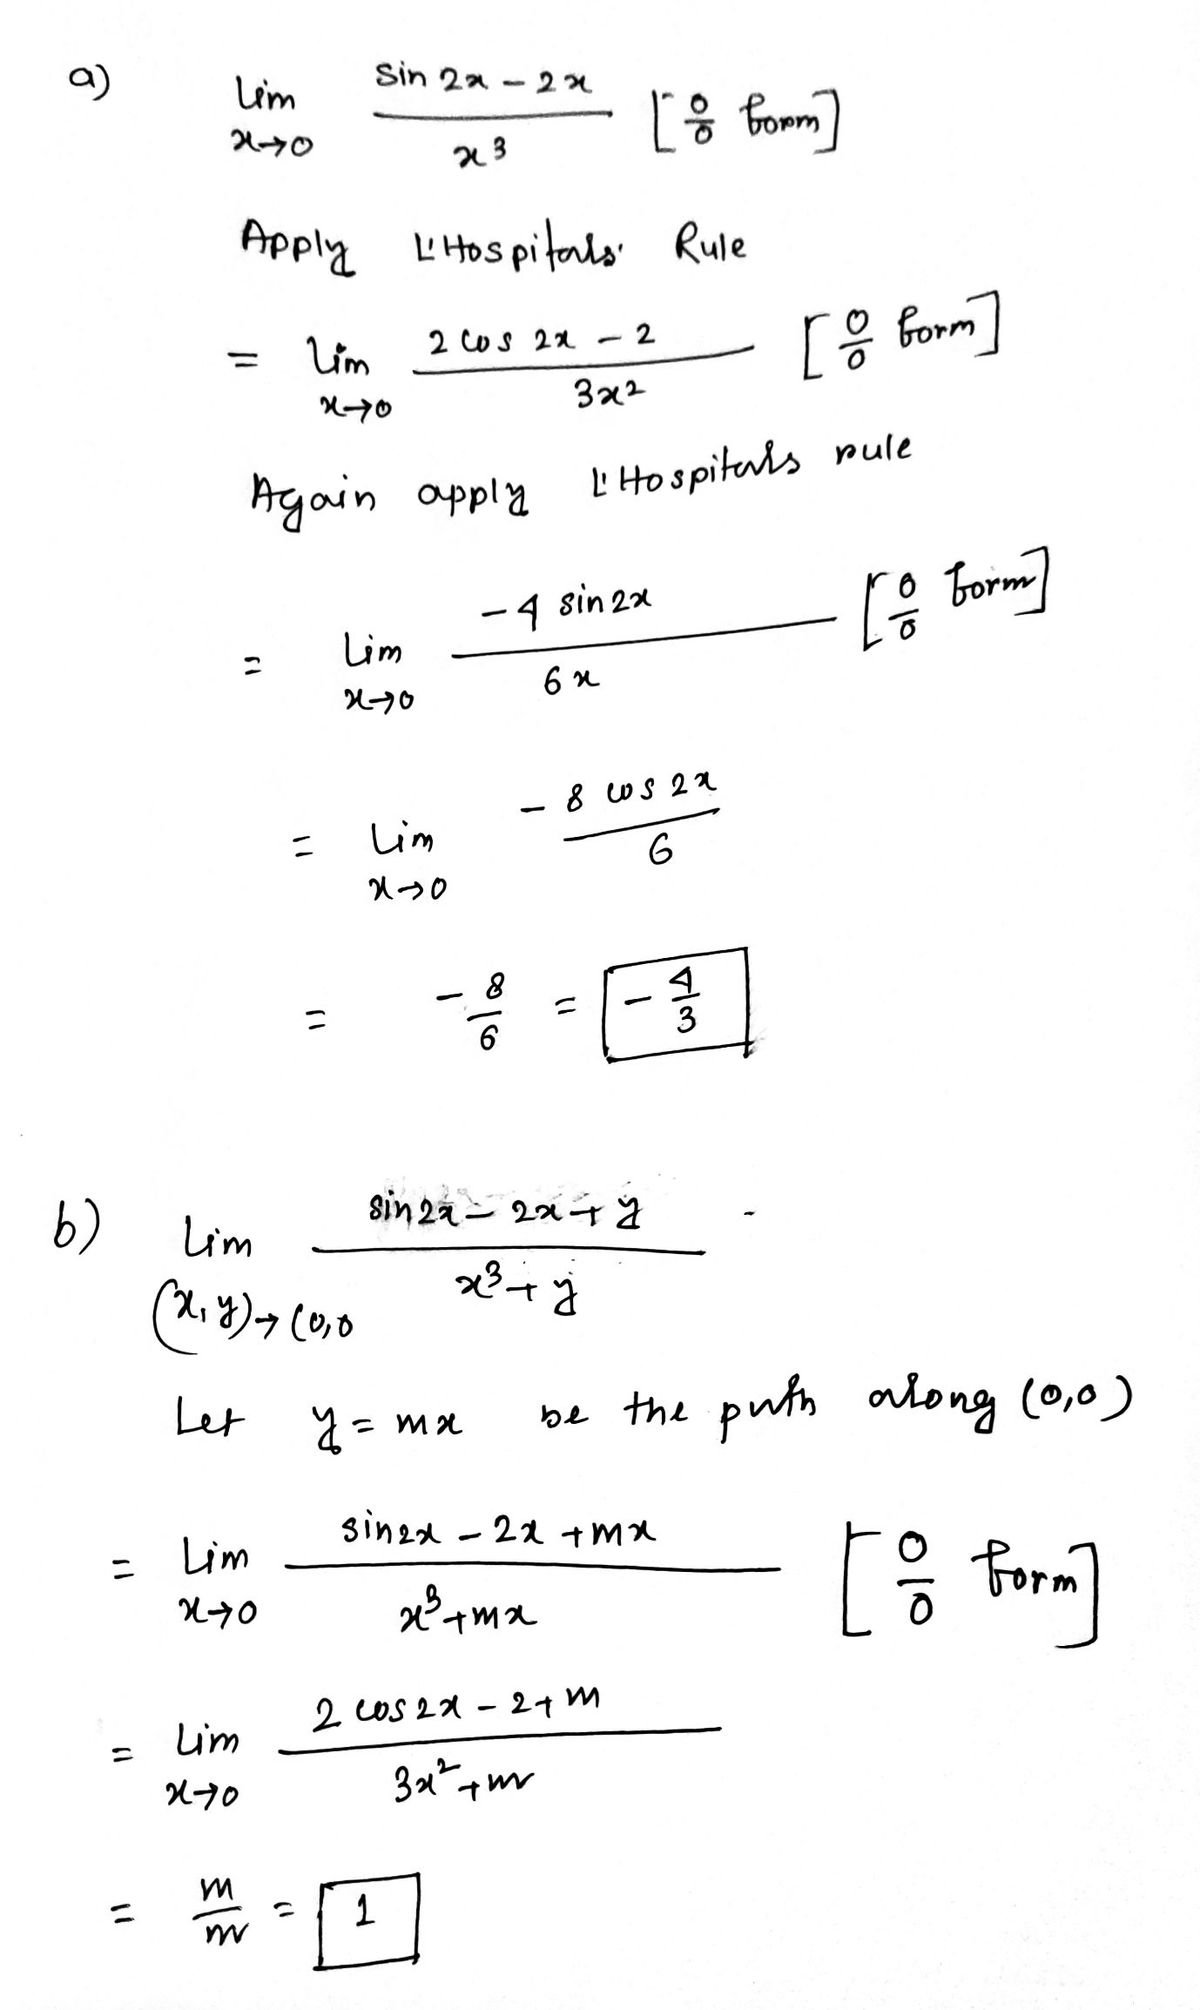 a) lim x→0 (sin 2x - 2x) / x³ [0/0 form]
Apply L'Hospitals' Rule
= lim x→0 (2 cos 2x - 2) / 3x² [0/0 form]
Again apply L'Hospitals rule
= Lim x→0 (-4 sin 2x) / 6x [0/0 form]
= Lim x→0 - 8 cos 2x / 6
= - 8/6 = - 4/3
b) Lim (x,y)→(0,0 (sin 2x - 2x + y) / (x³ + y)
Let y = mx be the path along (0,0)
= Lim x→0 (sin 2x - 2x + mx) / (x³ + mx) [0/0 form]
= Lim x→0 (2 cos 2x - 2 + m) / (3x² + m)
= m/m = 1